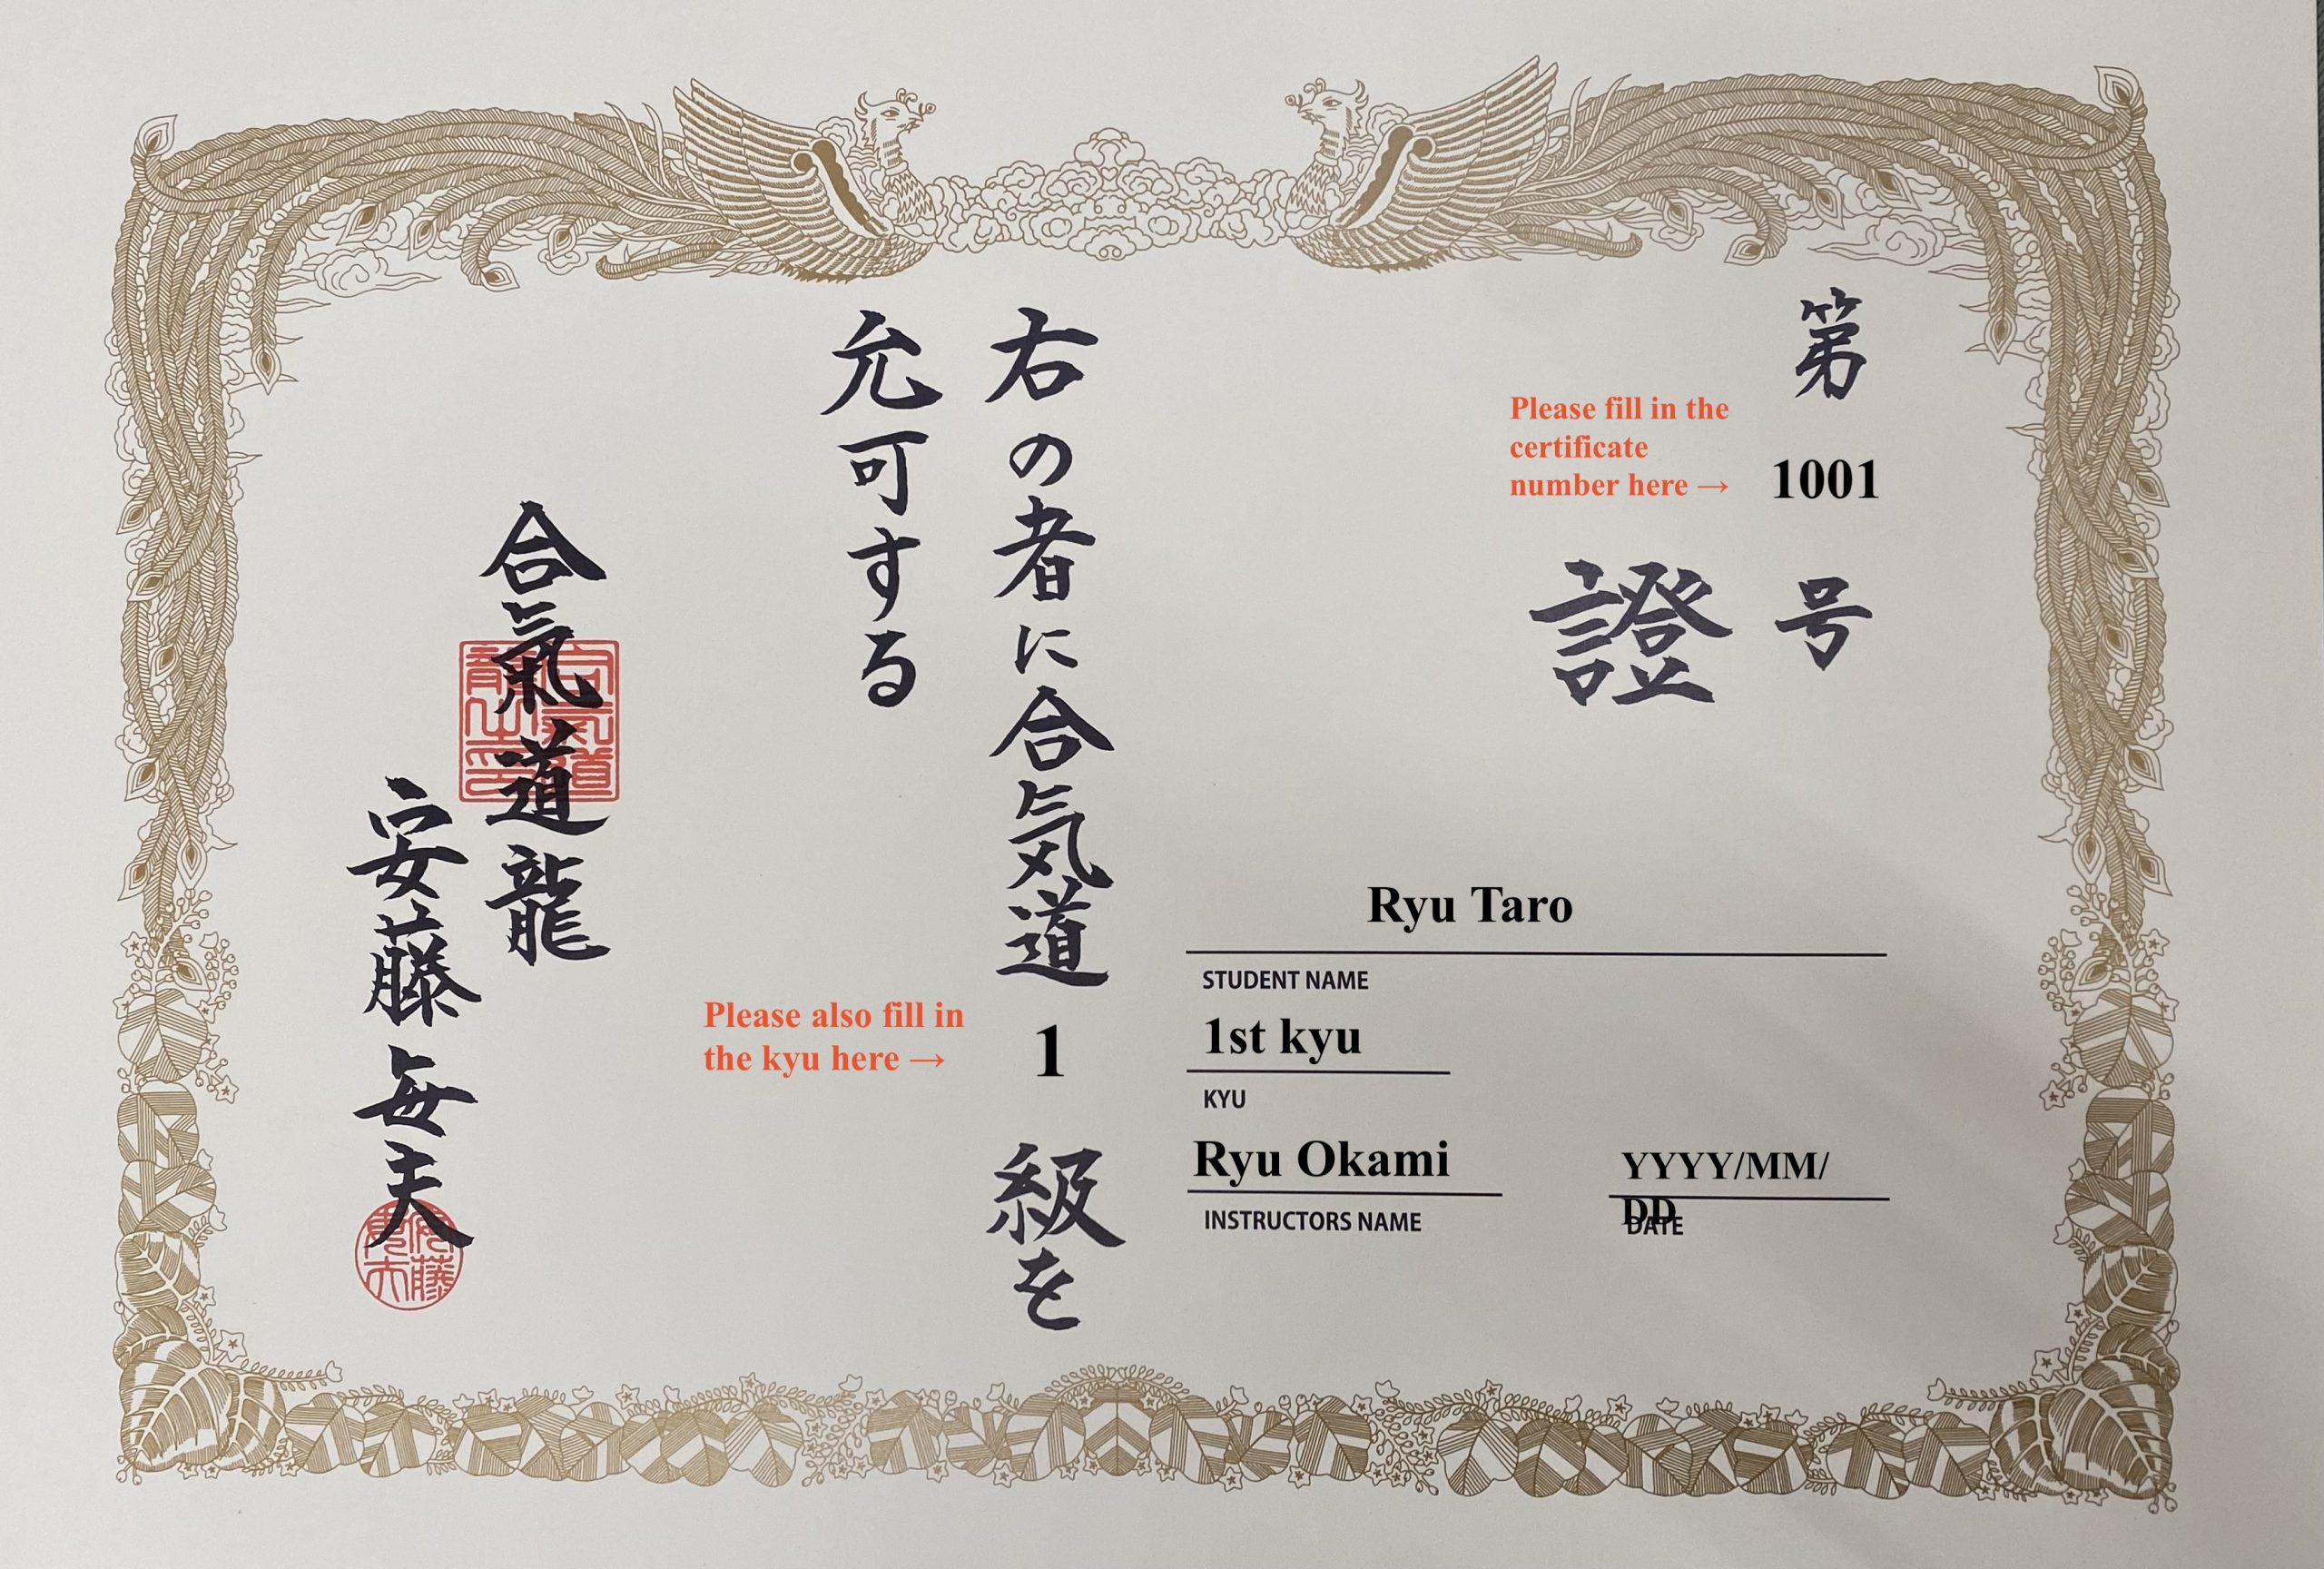 第
1001
号
Please fill in the
certificate
number here →
證
Ryu Taro
STUDENT NAME
1st kyu
KYU
Ryu Okami
INSTRUCTORS NAME
YYYY/MM/
DD
DATE
右の者に合気道
1
級を
Please also fill in
the kyu here →
允可する
合氣道龍
安藤毎夫